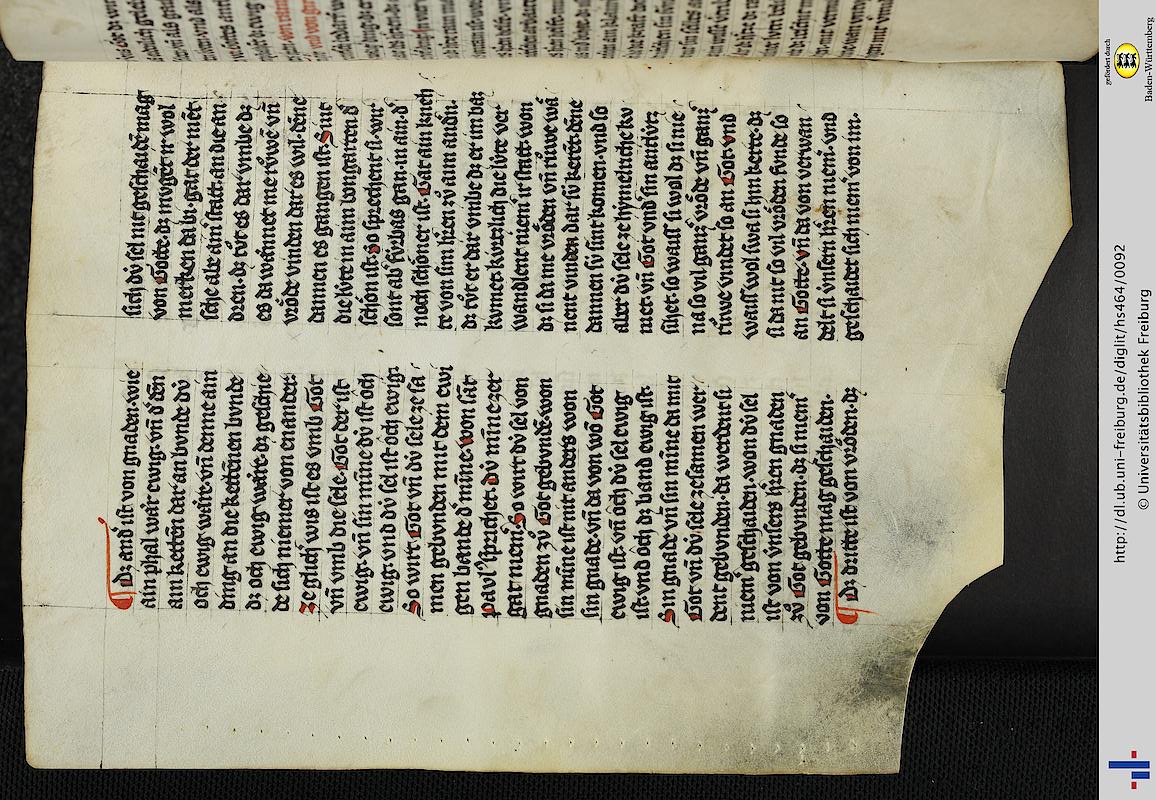 Dz and' ist von gnaden. wie
ain phal wår ewig. vn̄ d' den
ain ketten dar an bunde dú
och ewig wåre. vn̄ denne ain
ding an die kettenen bunde
dz och ewig wåre. dz geschie
de sich niemer von enander.
Ze glich wis ist es vmb Got
vn̄ vmb die sele. Got der ist
ewig. vn̄ sin mīne dú ist och
ewig. vnd dú sel ist och ewig.
So wirt Got vn̄ dú sele ze sa
men gebvnden mit dem ewi
gen bande d' mīne. won sāt
pavl' sprichet. dú mīne zer
gat niem'. So wirt dú sel von
gnaden zů Got gebvndē. won
sin mīne ist nit anders won
sin gnade. vn̄ da von wō Got
ewig ist. vn̄ och dú sel ewig
ist. vnd och dz band ewig ist.
Sin gnade vn̄ sin mīne da mit
Got vn̄ dú sele ze samen wer
dent gebvnden. da werdent si
niem' geschaiden. won dú sel
ist von vnsers h'ren gnaden
zů Got gebvnden. dz si niem'
von Gotte mag geschaiden.
Dz dritte ist von vrôden. dz
sich dú sel nit geschaidē mag
von Gotte. dz mvgēt ir wol
merken da bi. gat der mēt
sche abe ainʼ statt. an die an
dren. dz tůt es dar vmbe dz
es da wānnet me růwe vn̄
vrôde vinden dar es wil. dēne
dannen es gangen ist. Sint
die lúte in aim bongarten d'
schôn ist. So sprechent si. wir
sont ab' fúrbas gan. in ain. d'
noch schôner ist. Gat ain kneh
te von sim h'ren zů aim andn.
dz tůt er dar vmbe dz er im baz
kvmet. kvrzlich die lúte ver
wandlent niem' ir statt. won
dz si da me vrôden vn̄ růwe wā
nent vinden dar sú kerēt. dēne
dannen sú sint komen. vnd so
aber dú sele ze hymelriche kv
met. vn̄ Got vnd sin antlvtz
sihet. so waiss si wol dz si nie
na so vil ganz' vrôde vn̄ ganz'
růwe vindet so an Got. vnd
waiss wol swa si hin kerte. dz
si da nit so vil vrôden funde so
an Gotte. vn̄ da von verwan
delt si vnsern h'ren niem'. vnd
geschaidet sich niem' von im.
http://dl.ub.uni-freiburg.de/diglit/hs464/0092
© Universitätsbibliothek Freiburg
gefördert durch
Baden-Württemberg